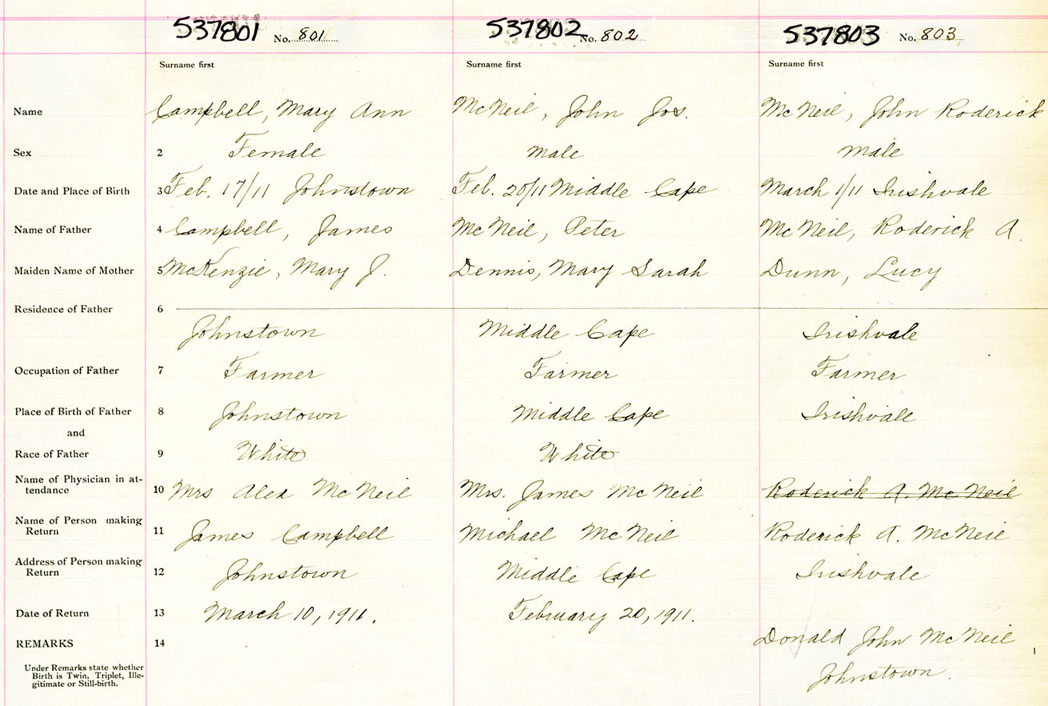 537801 No. 801 537802 No. 802 537803 No. 803
Surname first Surname first Surname first
Name Campbell, Mary Ann McNeil, John Jos. McNeil, John Roderick
Sex 2 Female Male Male
Date and Place of Birth 3 Feb. 17/11 Johnstown Feb. 20/11 Middle Cape March 1/11 Irishvale
Name of Father 4 Campbell, James McNeil, Peter McNeil, Roderick A.
Maiden Name of Mother 5 McKenzie, Mary J. Dennis, Mary Sarah Dunn, Lucy
Residence of Father 6
Johnstown Middle Cape Irishvale
Occupation of Father 7 Farmer Farmer Farmer
Place of Birth of Father 8 Johnstown Middle Cape Irishvale
and
Race of Father 9 White White
Name of Physician in at-
tendance 10 Mrs Alex McNeil Mrs. James McNeil Roderick A. McNeil
Name of Person making
Return 11 James Campbell Michael McNeil Roderick A. McNeil
Address of Person making
Return 12 Johnstown Middle Cape Irishvale
Date of Return 13 March 10, 1911. February 20, 1911.
REMARKS 14 Donald John McNeil
Johnstown.
Under Remarks state whether
Birth is Twin, Triplet, Ille-
gitimate or Still-birth.